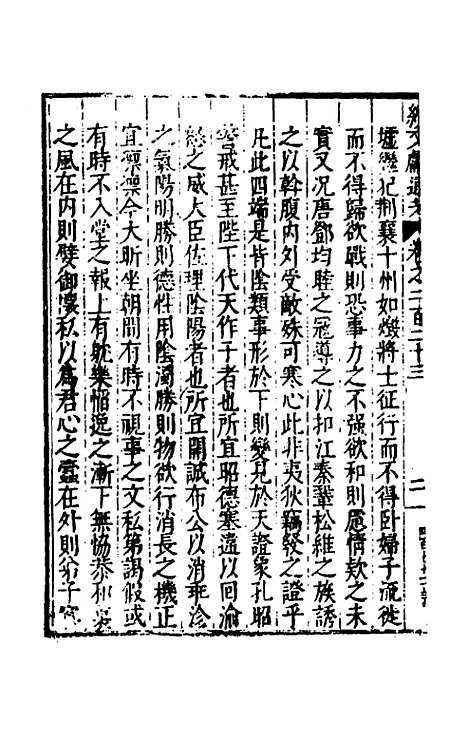 續文獻通考 卷之二百二十三 二
墟繼犯荆襄十州如燬將士征行而不得卧婦子流徙
而不得歸欲戰則恐事力之不强欲和則慮情欵之未
實又况唐鄧均睦之冦導之以扣江秦鞏松維之族誘
之以斡腹内外受敵殊可寒心此非夷狄竊發之證乎
凡此四端是皆陰類事形於下則變見於天證象孔昭
警戒甚至陛下代天作子者也所宜昭德塞違以回渝
之威大臣佐理陰陽者也所宜開誠布公以消乖沴
之氣陽明勝則德性用陰濁勝則物欲行消長之機正
宜凛凛今大昕坐朝間有時不視事之文私第謁假或
有時不入堂之報上有躭樂慆逸之漸下無協恭和衷
之風在内則嬖御懷私以爲君心之蠧在外則弟子寡